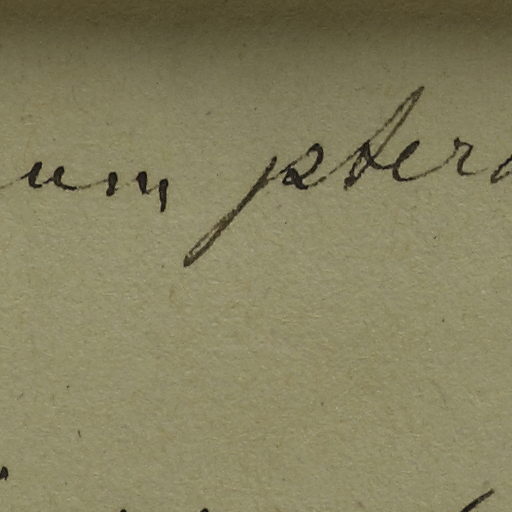 um ptero